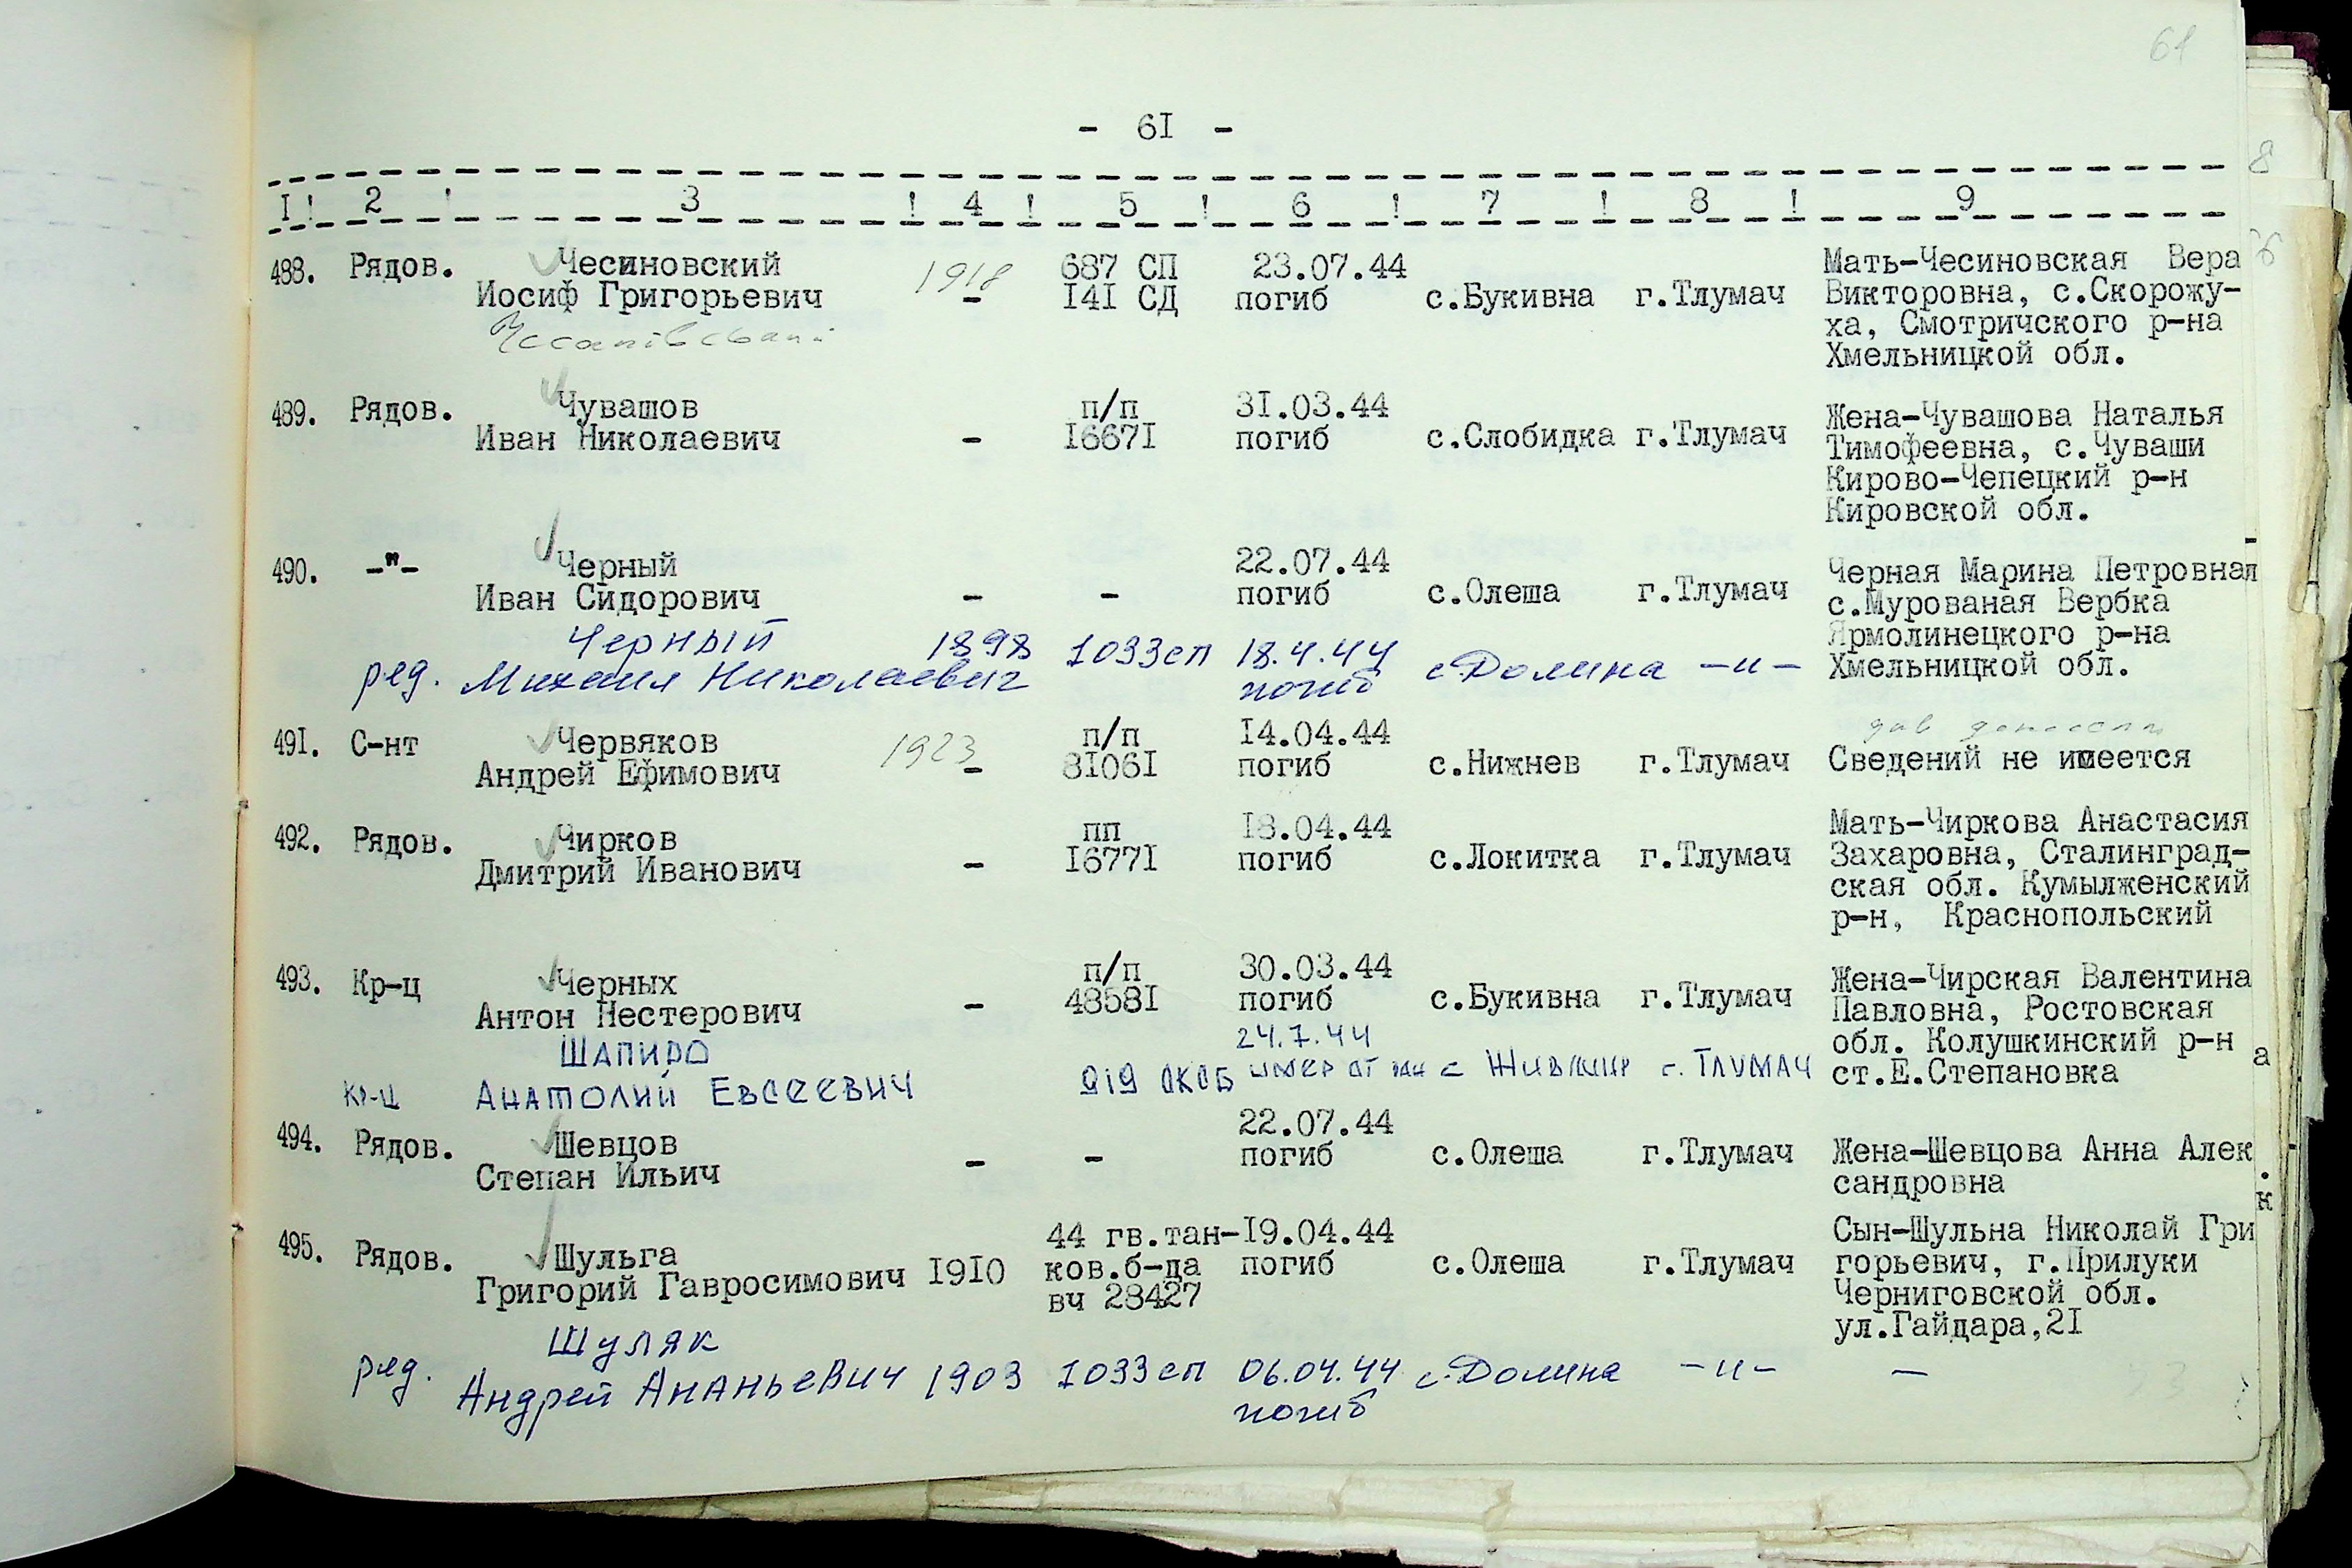 61
- 6I -
I! 2 ! 3 ! 4 ! 5 ! 6 ! 7 ! 8 ! 9
488. Рядов. Чесиновский 687 СП 23.07.44 Мать-Чесиновская Вера
Иосиф Григорьевич 1918 - I4I СД погиб с.Букивна г.Тлумач Викторовна, с.Скорожу-
ха, Смотричского р-на
Хмельницкой обл.
489. Рядов. Чувашов п/п 3I.03.44 Жена-Чувашова Наталья
Иван Николаевич - I667I погиб с.Слобидка г.Тлумач Тимофеевна, с.Чуваши
Кирово-Чепецкий р-н
Кировской обл.
490. -"- Черный 22.07.44 Черная Марина Петровна
Иван Сидорович - - погиб с.Олеша г.Тлумач с.Мурованая Вербка
Ярмолинецкого р-на
Хмельницкой обл.
Черный 1898 1033сп 18.4.44
ряд. Михаил Николаевич погиб с.Долина -"-
49I. С-нт Червяков п/п I4.04.44
Андрей Ефимович 1923 - 8I06I погиб с.Нижнев г.Тлумач Сведений не имеется
492. Рядов. Чирков пп I8.04.44 Мать-Чиркова Анастасия
Дмитрий Иванович - I677I погиб с.Локитка г.Тлумач Захаровна, Сталинград-
ская обл. Кумылженский
р-н, Краснопольский
493. Кр-ц Черных п/п 30.03.44 Жена-Чирская Валентина
Антон Нестерович - 4858I погиб с.Букивна г.Тлумач Павловна, Ростовская
обл. Колушкинский р-н
ст.Е.Степановка
Шапиро 24.7.44
кр-ц Анатолий Евсеевич умер от ран с г. Тлумач
494. Рядов. Шевцов 22.07.44
Степан Ильич - - погиб с.Олеша г.Тлумач Жена-Шевцова Анна Алек
сандровна
495. Рядов. Шульга 44 гв.тан- I9.04.44 Сын-Шульна Николай Гри
Григорий Гавросимович I9I0 ков.б-да погиб с.Олеша г.Тлумач горьевич, г.Прилуки
вч 28427 Черниговской обл.
ул.Гайдара,2I
Шуляк
ряд. Андрей Ананьевич 1903 1033сп 06.04.44 с.Долина -"- -
погиб